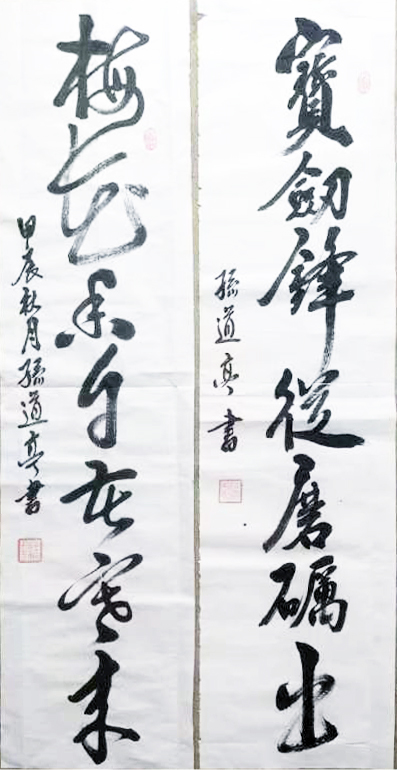 寶劒鋒從磨礪出
孫道亭書
梅花香自苦寒来
甲辰秋月孫道亭書